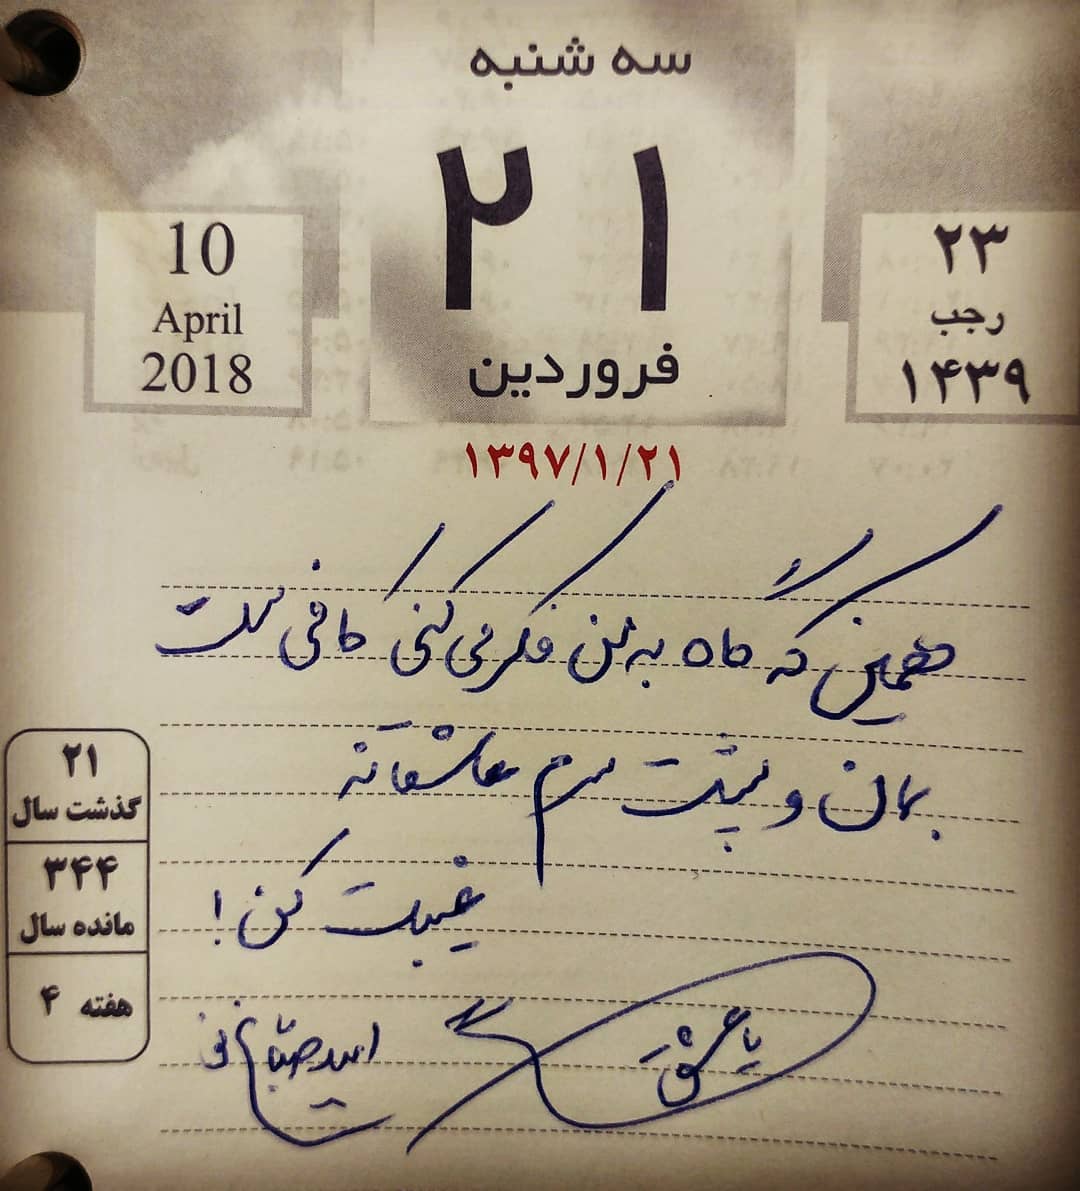 سه شنبه
۲۱
فروردین
۱۳۹۷/۱/۲۱
۲۳
رجب
۱۴۳۹
10
April
2018
همین که گاه به من فکر می کنی کافی نیست
بمان و پشت سرم عاشقانه
غیبت کن!
با عشق
امید صباغ نو
۲۱
گذشت سال
۳۴۴
مانده سال
هفته ۴